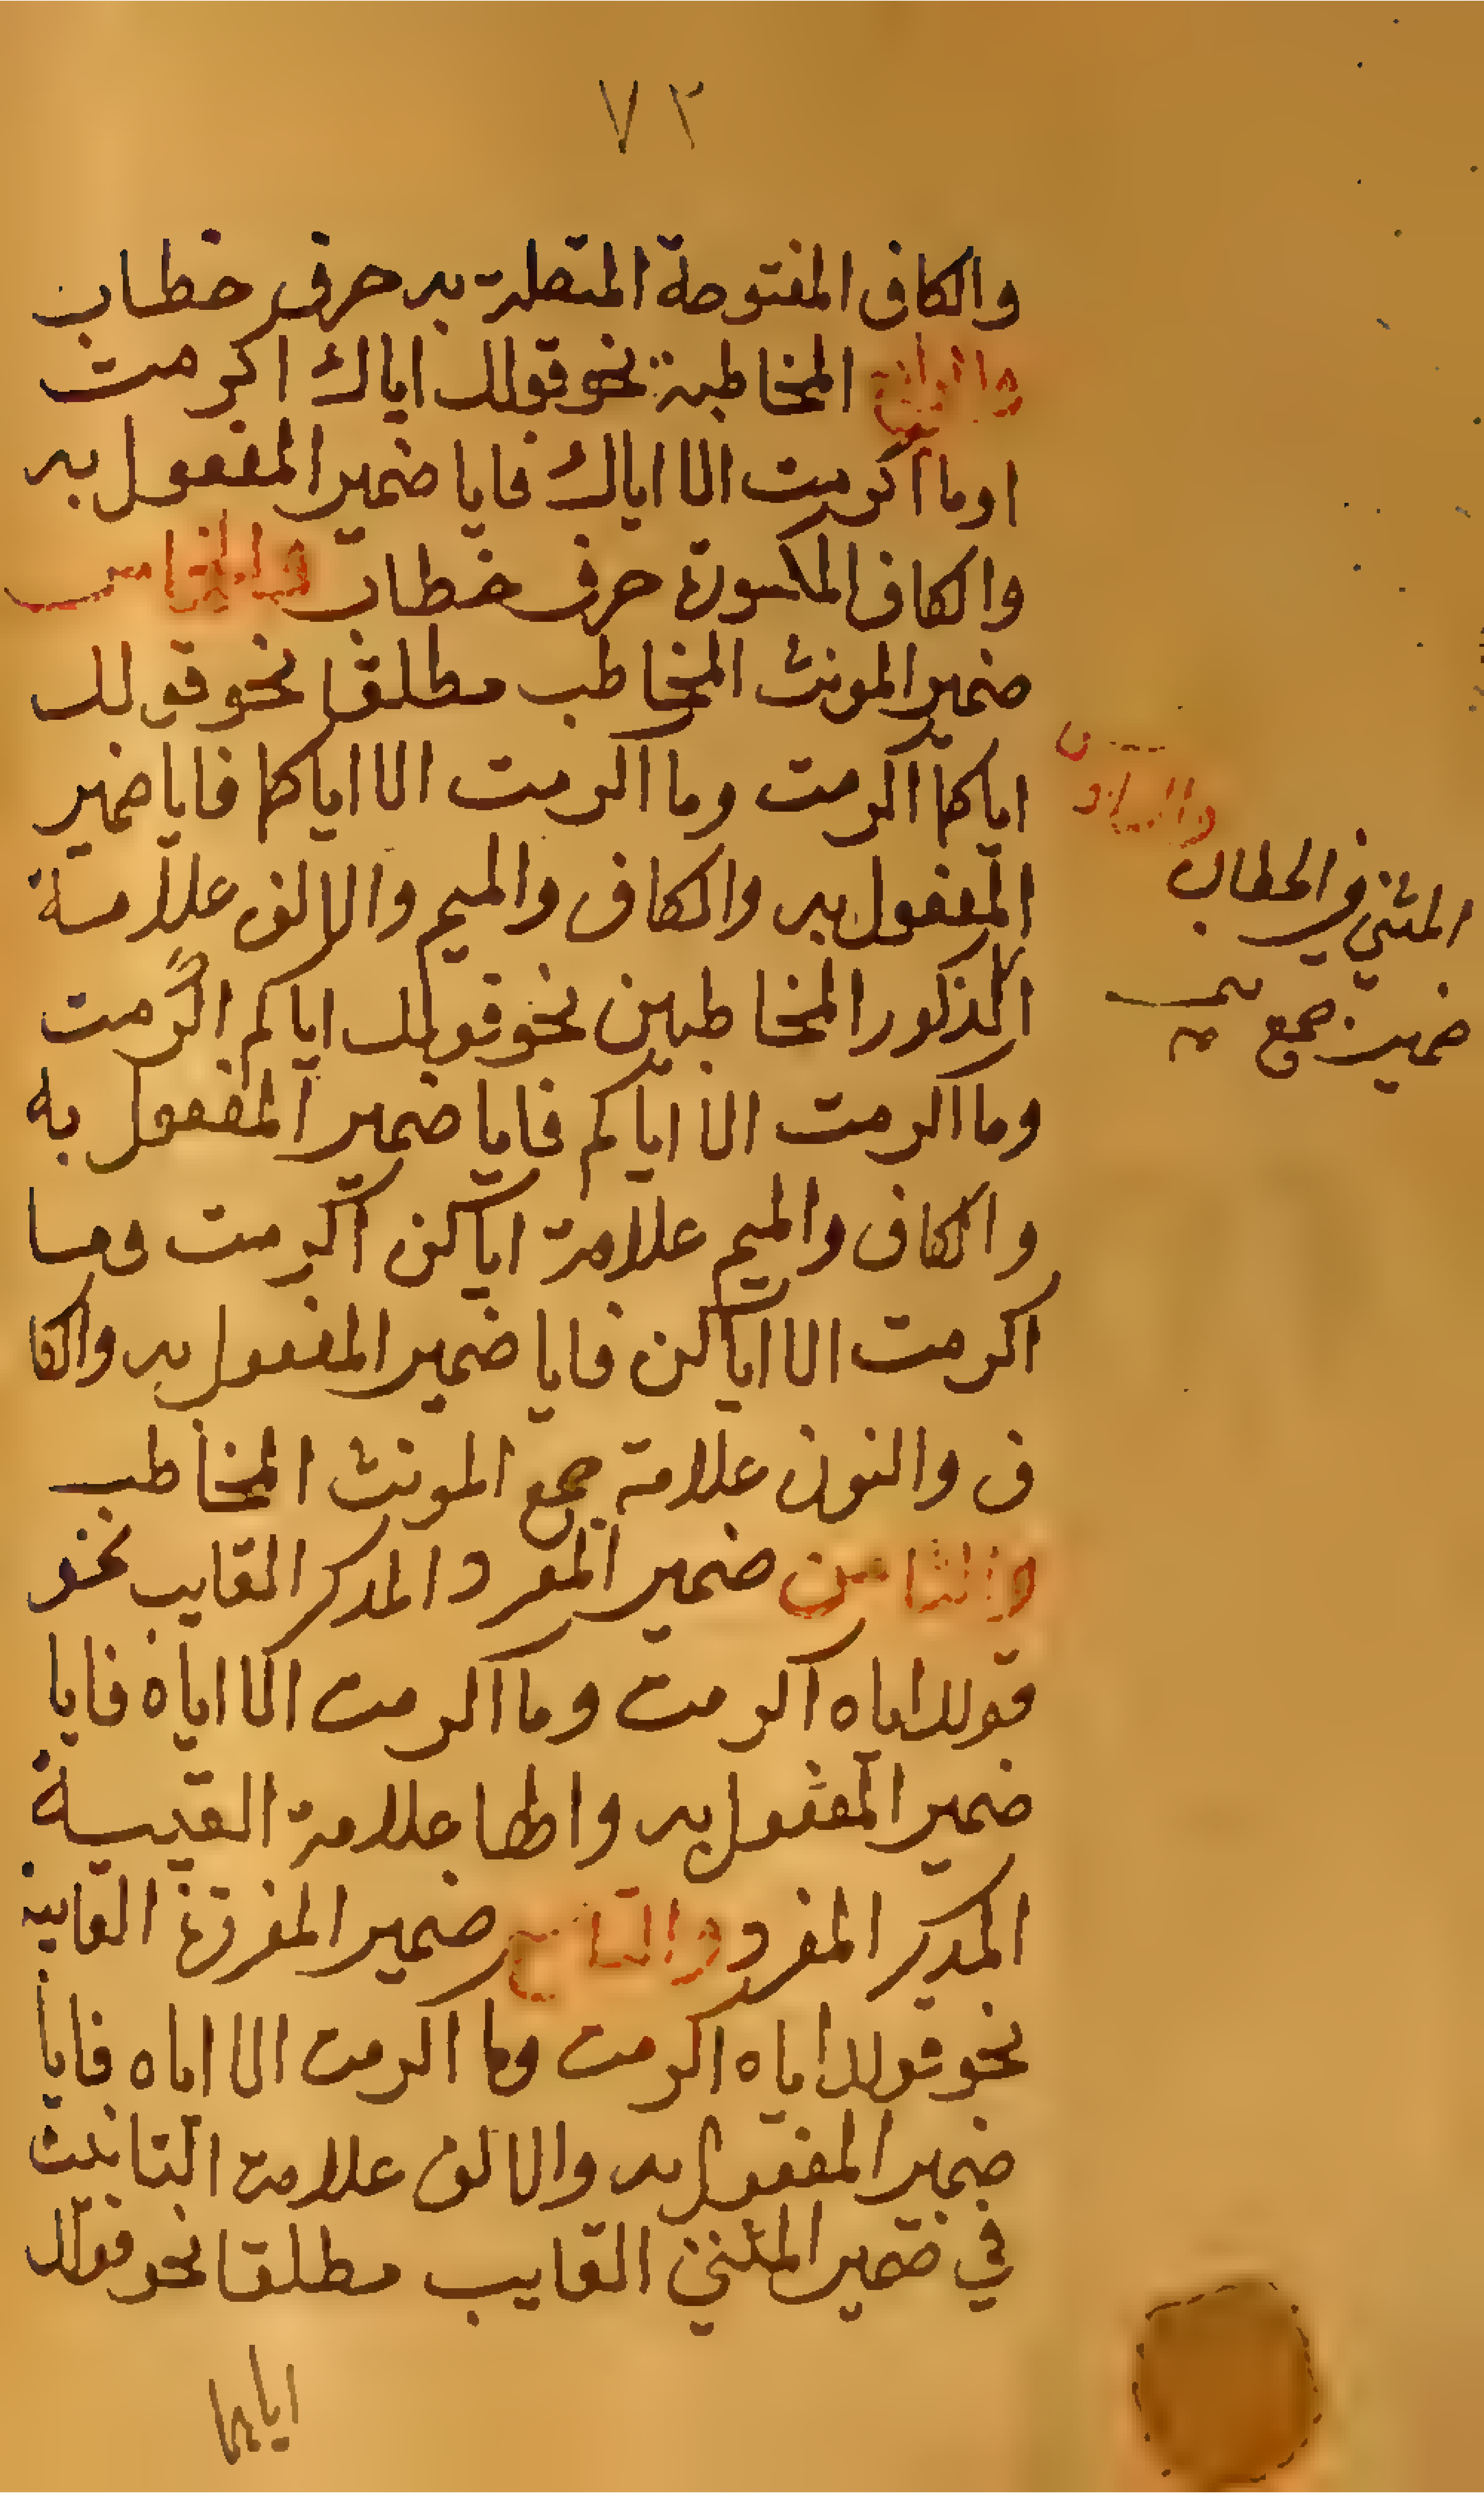 ٧٢
والكاف المفتوحة المتصلة به حرف خطاب
والرابع المخاطبة نحو قولك اياك اكرمت
اوما اكرمت الا اياك فايا ضمير المفعول به
والكاف المكسورة حرف خطاب والخامس
ضمير المونث المخاطب مطلقا نحو قولك
اياكما اكرمت وما اكرمت الا اياكما فايا ضمير
المفعول به والكاف والميم والالف علامة
المذكور المخاطبين نحو قولك اياكم اكرمت
وما اكرمت الا اياكم فايا ضمير المفعول به
والكاف والميم علامة اياكن اكرمت وما
اكرمت الا اياكن فايا ضمير المفعول به والكا
ف والنون علامة جمع المونث المخاطب
والثامن ضمير المفرد المذكر الغايب نحو
قولك اياه اكرمت وما اكرمت الا اياه فايا
ضمير المفعول به والها علامة الغيبة
المذكر المفرد والتاسع ضمير المفردة الغايبة
نحو قولك اياه اكرمت وما اكرمت الا اياه فايا
ضمير المفعول به والالف علامة التانيث
في ضمير المثنى الغايب مطلقا نحو قولك
اياهما
والسادس
المثنى في الخطاب
ضمير جمع